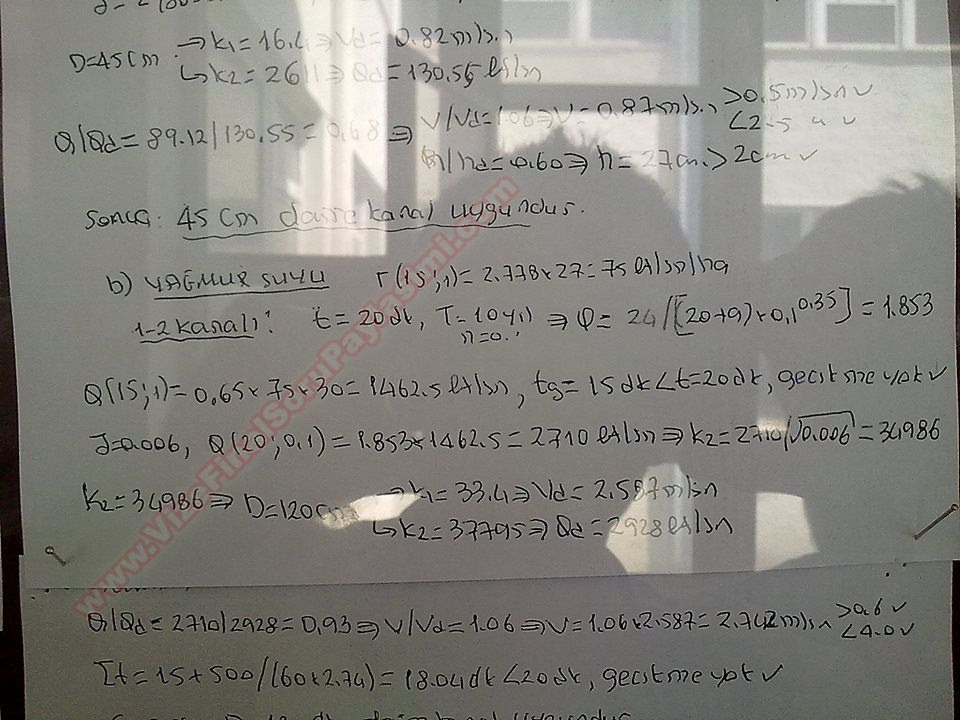 D=45cm → k1=16.4 ⇒ Vd= 0.82m/s.n
↳ k2=2611 ⇒ Qd=130.55 lt/sn
Q/Qd = 89.12/130.55 = 0.68 ⇒ V/Vd=1.06 ⇒ V=0.87m/s.n >0.5m/sn ✓
<2.5 " ✓
h/hd=0.60 ⇒ h=27cm.>2cm ✓
SONUÇ: 45 cm daire kanal uygundur.
b) YAĞMUR SUYU r(15;1)=2.778x27=75 lt/sn/ha
1-2 kanalı: t=20dk, T=10yıl ⇒ φ= 24/[(20+9)x0,1^0.35]=1.853
Q(15;1)=0,65x75x30=1462.5 lt/sn, tg=15dk<t=20dk, gecikme yok ✓
J=0.006, Q(20;0,1)=1.853x1462.5=2710 lt/sn ⇒ k2=2710/√0.006=34986
K2=34986 ⇒ D=120cm → k1=33.4 ⇒ Vd=2.587m/sn
↳ k2=37795 ⇒ Qd=2928lt/sn
Q/Qd=2710/2928=0,93 ⇒ V/Vd=1.06 ⇒ V=1.06x2.587=2.742m/sn >0.6 ✓
<4.0 ✓
Σt=15+500/(60x2.74)=18.04dk<20dk, gecikme yok ✓
www.VizeFinalSoruPaylasimi.com